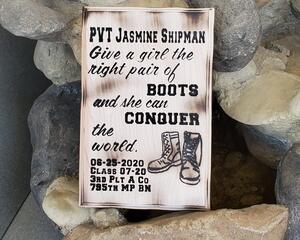 PVT JASMINE SHIPMAN
Give a girl the
right pair of
BOOTS
and she can
CONQUER
the
world.
06-25-2020
CLASS 07-20
3RD PLT A CO
795TH MP BN